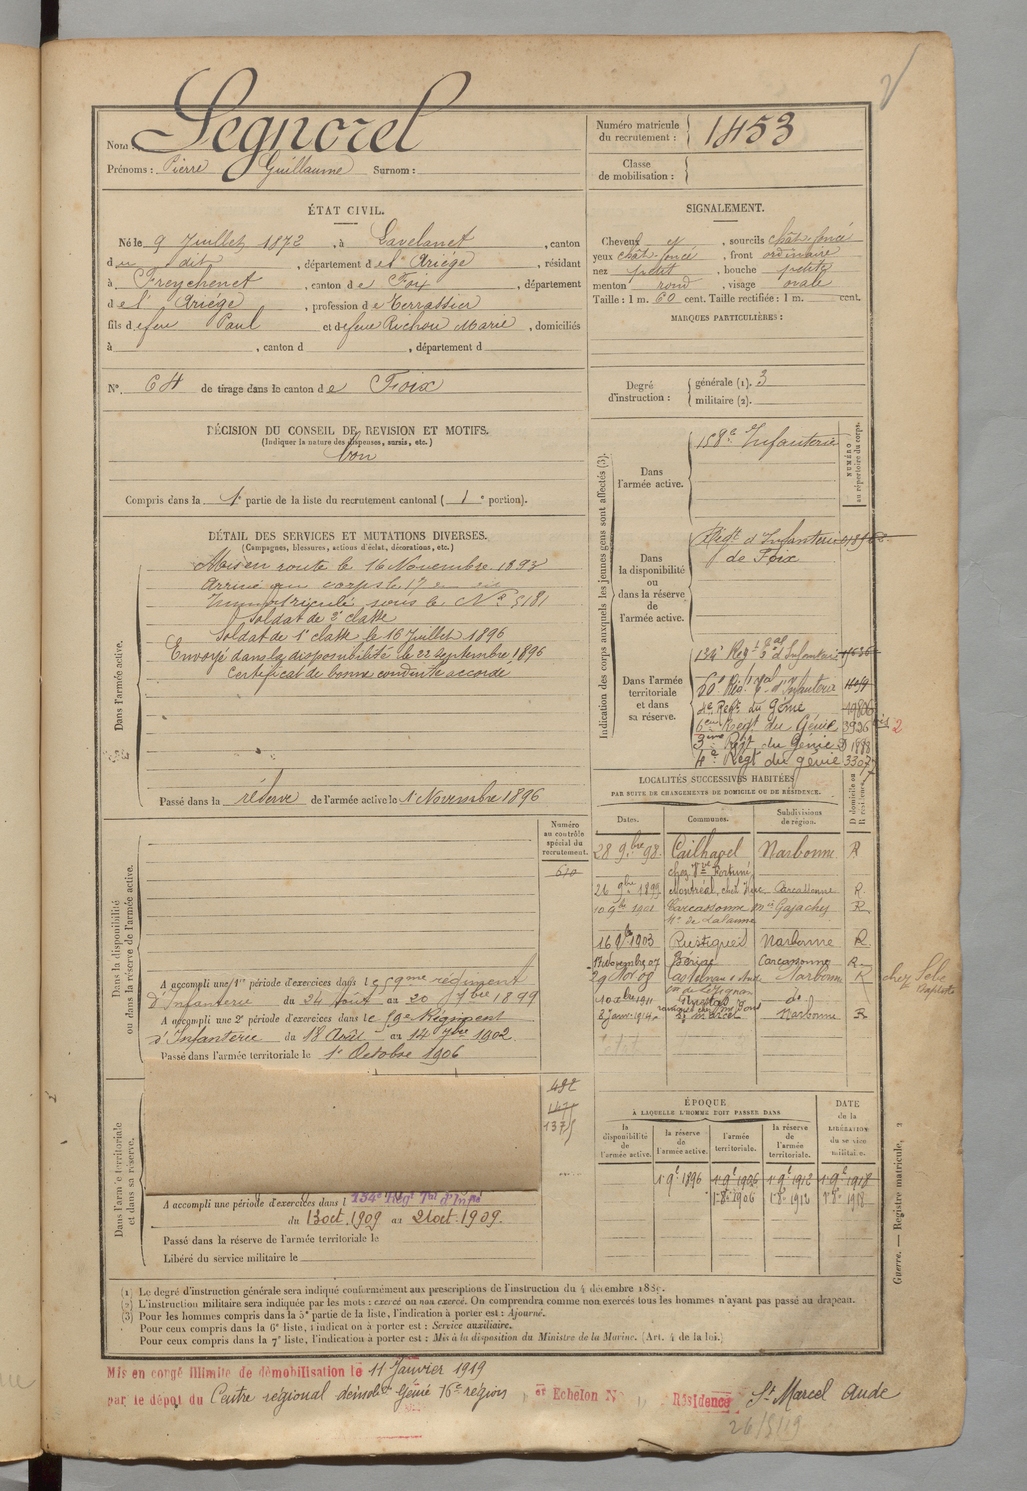 Nom Segnorel
Prénoms : Pierre Guillaume Surnom :
Numéro matricule du recrutement : 1453
Classe de mobilisation :
ÉTAT CIVIL.
Né le 9 Juillet 1872, à Lavelanet, canton
du dit, département de l'Ariége, résidant
à Freychenet, canton de Foix, département
de l'Ariége, profession de Terrassier
fils de feu Paul et de feue Richou Marie, domiciliés
à , canton d , département d
N° 64 de tirage dans le canton de Foix
SIGNALEMENT.
Cheveux et , sourcils chât. foncé
yeux chât. foncé , front ordinaire
nez petit , bouche petite
menton rond , visage ovale
Taille : 1 m. 60 cent. Taille rectifiée : 1 m. cent.
MARQUES PARTICULIÈRES :
Degré d'instruction : générale (1). 3
militaire (2).
DÉCISION DU CONSEIL DE REVISION ET MOTIFS.
(Indiquer la nature des dispenses, sursis, etc.)
bon
Compris dans la 1e partie de la liste du recrutement cantonal ( 1 e portion).
DÉTAIL DES SERVICES ET MUTATIONS DIVERSES.
(Campagnes, blessures, actions d'éclat, décorations, etc.)
Dans l'armée active.
Mis en route le 16 Novembre 1893
Arrivé au corps le 17
Immatriculé sous le N° 5181
Soldat de 2e classe
Soldat de 1e classe le 16 Juillet 1896
Envoyé dans la disponibilité le 22 septembre 1896
Certificat de bonne conduite accordé
Passé dans la réserve de l'armée active le 1 Novembre 1896
Indication des corps auxquels les jeunes gens sont affectés (3).
NUMÉRO au répertoire du corps.
Dans l'armée active.
158e Infanterie
Dans la disponibilité ou dans la réserve de l'armée active.
Régt d'Infanterie
de Foix
Dans l'armée territoriale et dans sa réserve.
134e Régt d'Infanterie
4e Régt du Génie
6ème Régt du Génie 3936 bis 2
3ème Régt du Génie 1888
4e Régt du génie 3307
LOCALITÉS SUCCESSIVES HABITÉES
PAR SUITE DE CHANGEMENTS DE DOMICILE OU DE RÉSIDENCE.
Dates. Communes. Subdivisions de région. D domicile ou R résidence.
28 9bre 98. Cailhavel Narbonne R
26 9bre 1899 Montréal, chez Carcassonne R
10 9bre 1901 Carcassonne R
16 1903 Rustiques Narbonne R
17 Novembre 07 Carcassonne R
29 Nov 09 Narbonne R chez
10 Xbre 1911 de
2 Janv. 1914 St Marcel Narbonne R
Dans la disponibilité ou dans la réserve de l'armée active.
Numéro au contrôle spécial du recrutement.
610
A accompli une 1re période d'exercices dans le 59me régiment
d'Infanterie du 24 Août au 20 7bre 1899
A accompli une 2e période d'exercices dans le 59e Régiment
d'Infanterie du 18 Août au 14 7bre 1902.
Passé dans l'armée territoriale le 1er Octobre 1906
Dans l'armée territoriale et dans sa réserve.
1375
A accompli une période d'exercices dans l 134e Régt Tal d'Infie
du 13 oct. 1909 au 21 oct. 1909.
Passé dans la réserve de l'armée territoriale le
Libéré du service militaire le
ÉPOQUE
À LAQUELLE L'HOMME DOIT PASSER DANS
DATE de la LIBÉRATION du service militaire.
la disponibilité de l'armée active. la réserve de l'armée active. l'armée territoriale. la réserve de l'armée territoriale.
1 9e 1896 1 9e 1906 1 9e 1912 1 9e 1918
1 8e 1906 1 8e 1912 1 8e 1918
Guerre. — Registre matricule, 2
(1) Le degré d'instruction générale sera indiqué conformément aux prescriptions de l'instruction du 4 décembre 1889.
(2) L'instruction militaire sera indiquée par les mots : exercé ou non exercé. On comprendra comme non exercés tous les hommes n'ayant pas passé au drapeau.
(3) Pour les hommes compris dans la 5e partie de la liste, l'indication à porter est : Ajourné.
Pour ceux compris dans la 6e liste, l'indication à porter est : Service auxiliaire.
Pour ceux compris dans la 7e liste, l'indication à porter est : Mis à la disposition du Ministre de la Marine. (Art. 4 de la loi.)
Mis en congé illimité de démobilisation le 11 Janvier 1919
par le dépôt du Centre régional démob. Génie 16e région et Echelon N° Résidence St Marcel Aude
26/5/19